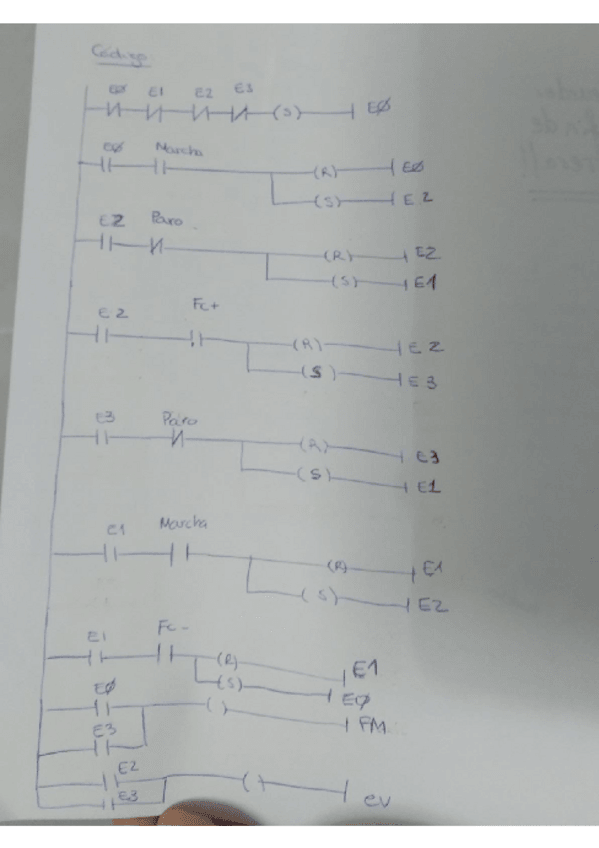 Código
EØ E1 E2 E3 (S) EØ
EØ Marcha (R) EØ
(S) E2
E2 Paro (R) E2
(S) E1
E2 Fc+ (R) E2
(S) E3
E3 Paro (R) E3
(S) E1
E1 Marcha (R) E1
(S) E2
E1 Fc- (R) E1
(S) EØ
EØ ( ) PM
E3
E2 ( ) EV
E3